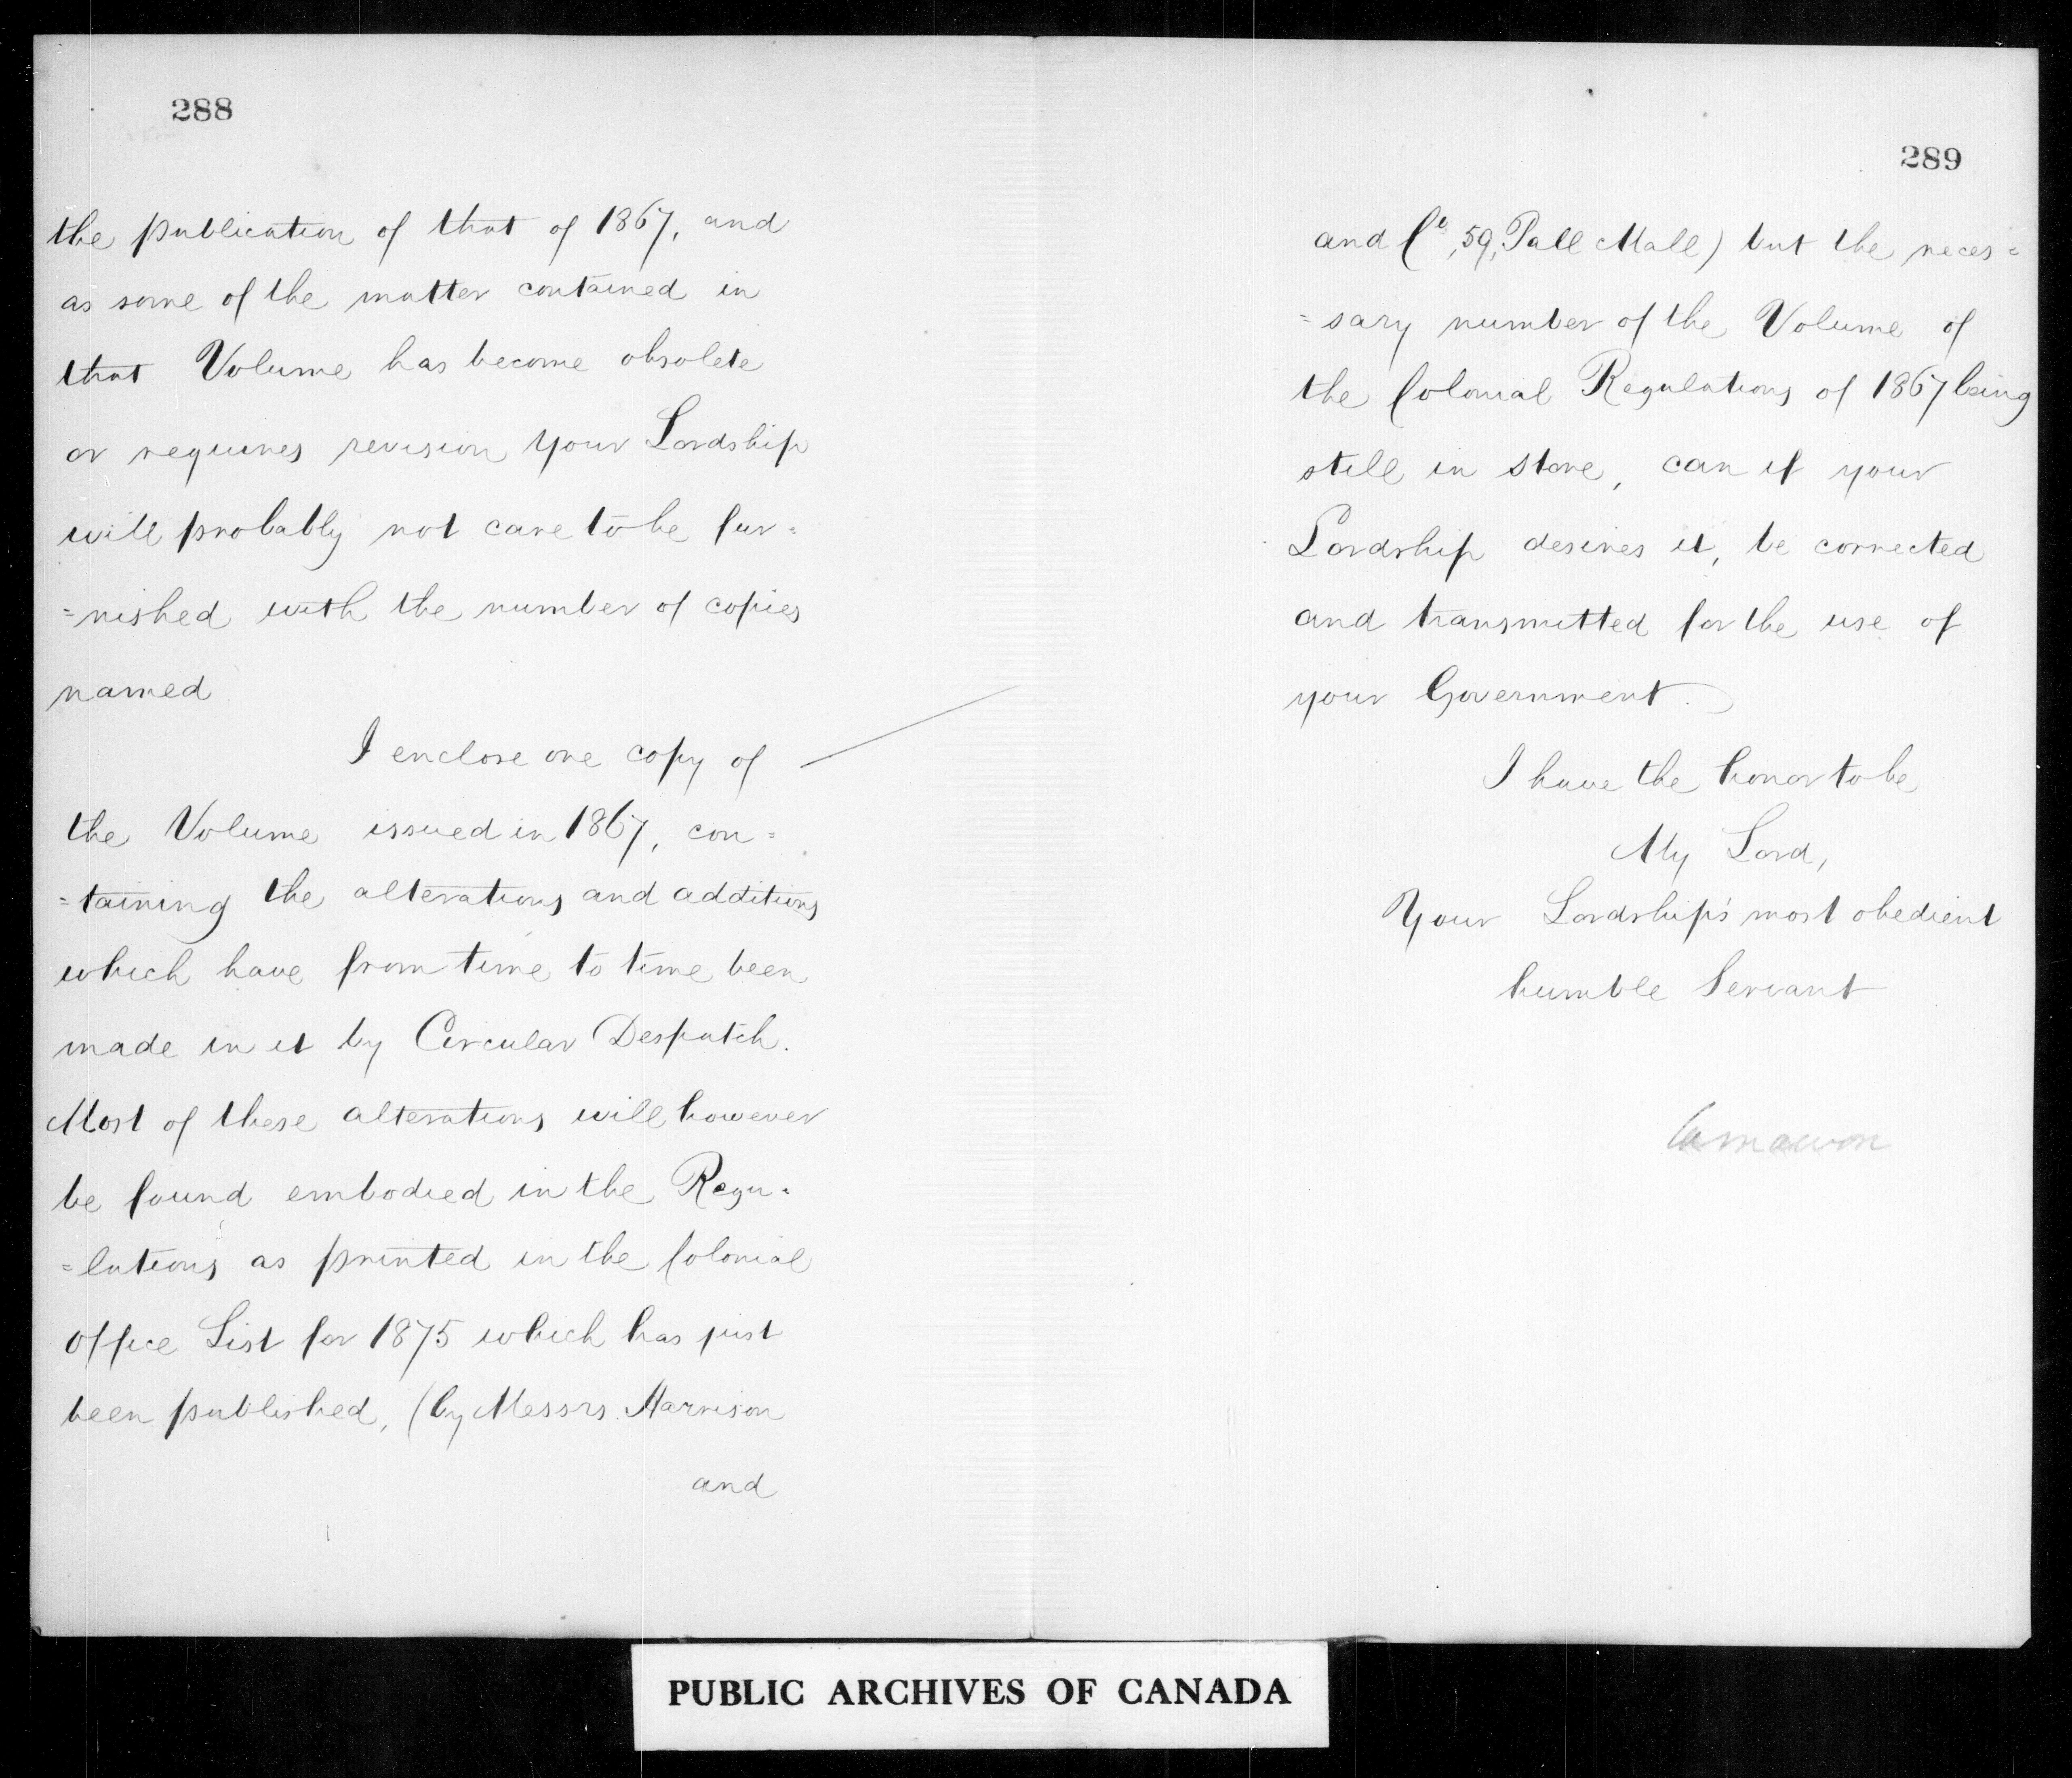 288
the publication of that of 1867, and
as some of the matter contained in
that Volume has become obsolete
or requires revision your Lordship
will probably not care to be fur=
=nished with the number of copies
named
I enclose one copy of
the Volume issued in 1867, con=
=taining the alterations and additions
which have from time to time been
made in it by Circular Despatch.
Most of these alterations will however
be found embodied in the Regu=
=lations as printed in the Colonial
Office List for 1875 which has just
been published, (by Messrs. Harrison
and
289
and Co, 59, Pall Mall) but the neces=
=sary number of the Volume of
the Colonial Regulations of 1867 being
still in store, can if your
Lordship desires it, be corrected
and transmitted for the use of
your Government.
I have the honor to be
My Lord,
Your Lordship's most obedient
humble Servant
Carnarvon
PUBLIC ARCHIVES OF CANADA